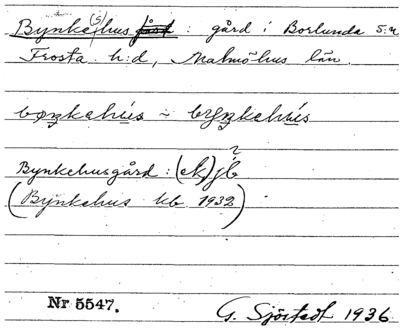 Bynke(s)hus : gård i Borlunda s:n
Frosta h:d, Malmöhus län.
bøŋkehús ~ byŋkehús
Bynkehusgård : (ek)jb
(Bynkehus kb 1932)
Nr 5547. G. Sjöstedt 1936